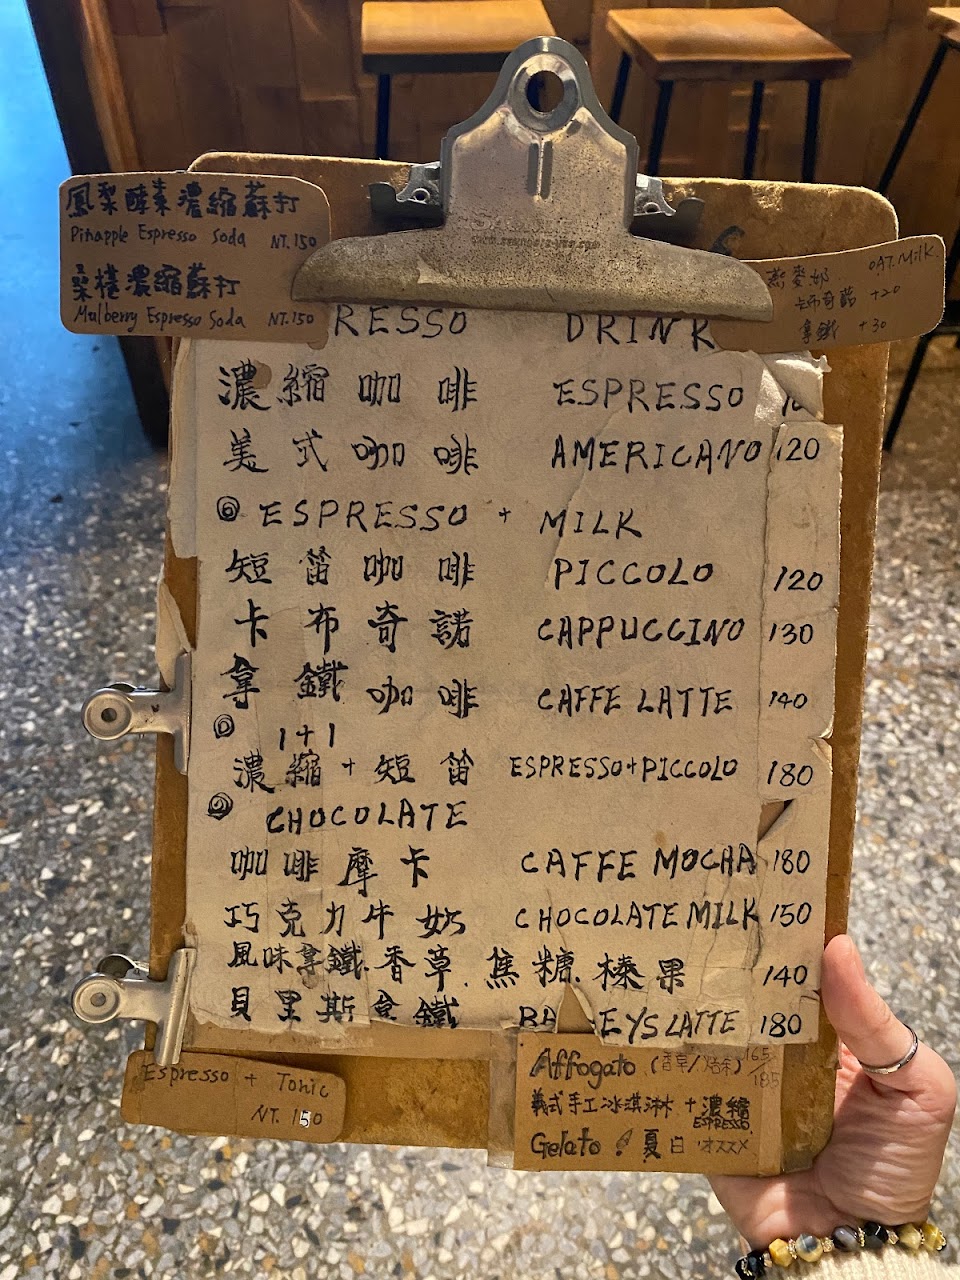 鳳梨酵素濃縮蘇打
Pinapple Espresso Soda NT.150
桑椹濃縮蘇打
Mulberry Espresso Soda NT.150
燕麥奶 OAT.Milk.
卡布奇諾 +20
拿鐵 +30
RESSO DRINK
濃縮咖啡 ESPRESSO
美式咖啡 AMERICANO 120
◎ ESPRESSO + MILK
短笛咖啡 PICCOLO 120
卡布奇諾 CAPPUCCINO 130
拿鐵咖啡 CAFFE LATTE 140
◎ 1+1
濃縮+短笛 ESPRESSO+PICCOLO 180
◎ CHOCOLATE
咖啡摩卡 CAFFE MOCHA 180
巧克力牛奶 CHOCOLATE MILK 150
風味拿鐵.香草.焦糖.榛果 140
貝里斯拿鐵 BA EYS LATTE 180
Espresso + Tonic
NT. 150
Affogato (香草/ 165/185
義式手工冰淇淋 + 濃縮
ESPRESSO.
Gelato ! 夏 オススメ